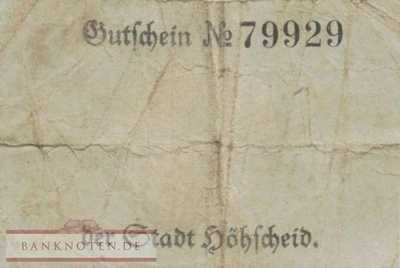 Gutschein № 79929
der Stadt Höhscheid.
BANKNOTEN.DE